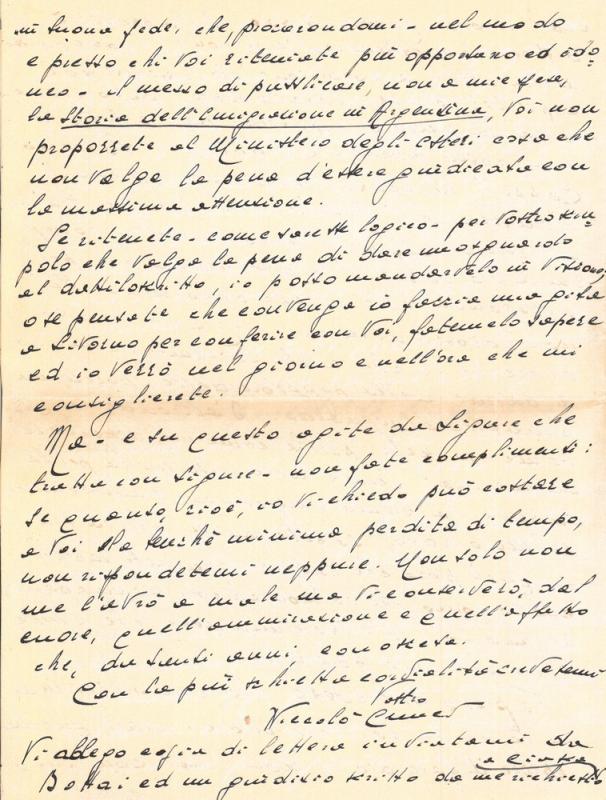 in buona fede, che, procurandomi - nel modo
e presso chi Voi riteniate più opportuno ed ido=
neo - il mezzo di pubblicare, non a mie spese,
la Storia dell'Emigrazione in Argentina, Voi non
proporrete al Ministero degli Esteri cosa che
non valga la pena d'essere giudicata con
la massima attenzione.
Se ritenete - come sarebbe logico - per Vostro scru=
polo che valga la pena di dare uno sguardo
al dattiloscritto, io posso mandarvelo in visione,
o se pensate che convenga io faccia una gita
a Livorno per conferire con Voi, fatemelo sapere
ed io verrò nel giorno e nell'ora che mi
consiglierete.
Ma - e su questo agite da Ligure che
tratta con Ligure - non fate complimenti:
se quanto, cioè, io Vi chiedo può costare
a Voi sia benchè minima perdita di tempo,
non rispondetemi neppure. Non solo non
me l'avrò a male ma Vi conserverò, dal
cuore, quell'ammirazione e quell'affetto
che, da tanti anni, conoscete.
Con la più schietta cordialità credetemi
Vostro
Niccolò Cuneo
Vi allego copia di lettera inviatami da
Bottai ed un giudizio scritto da me richiesto
a Ciasca